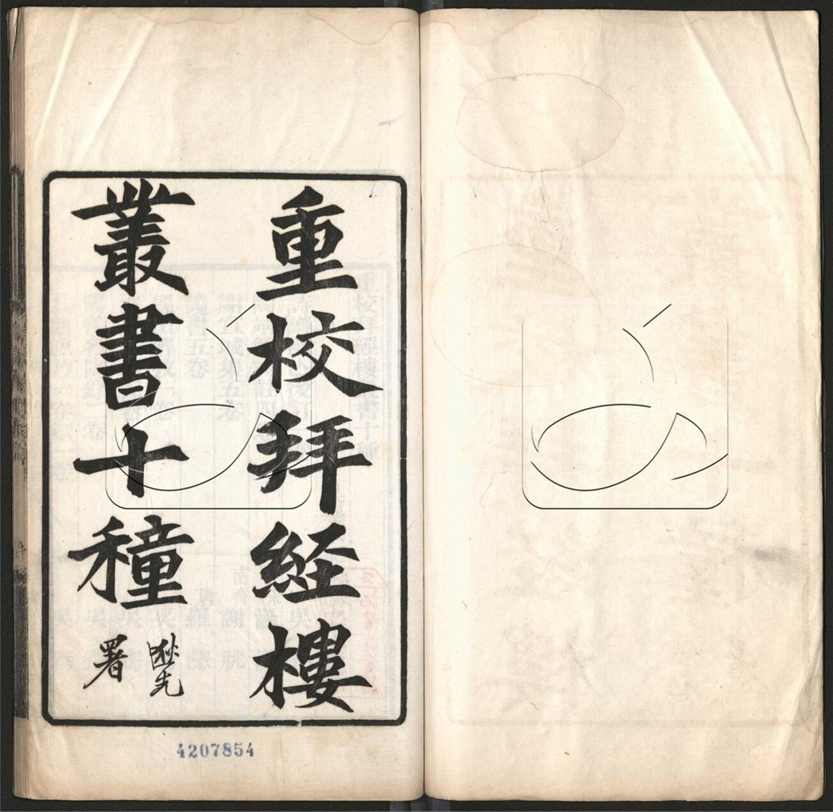 重校拜經樓
叢書十種
署
4207854